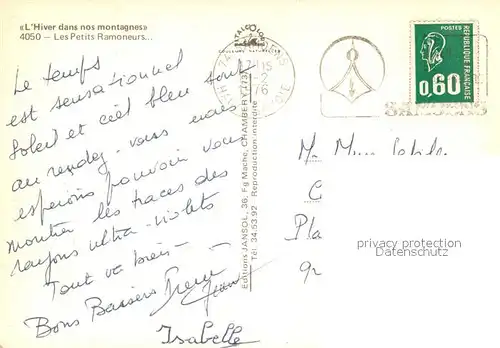 «L'Hiver dans nos montagnes»
4050 — Les Petits Ramoneurs...
Le temps
est sensationnel
Soleil et ciel bleu sont
au rendez-vous nous
espérons pouvoir vous
montrer les traces des
rayons ultra-violets
Tout va bien —
Bons Baisers
Isabelle
Editions JANSOL, 36, Fg Mache, CHAMBERY (73)
Tél. 34.53.92 - Reproduction interdite
15
-2
POSTES
RÉPUBLIQUE FRANÇAISE
0,60
M. Mme
C
Pla
92
privacy protection
Datenschutz